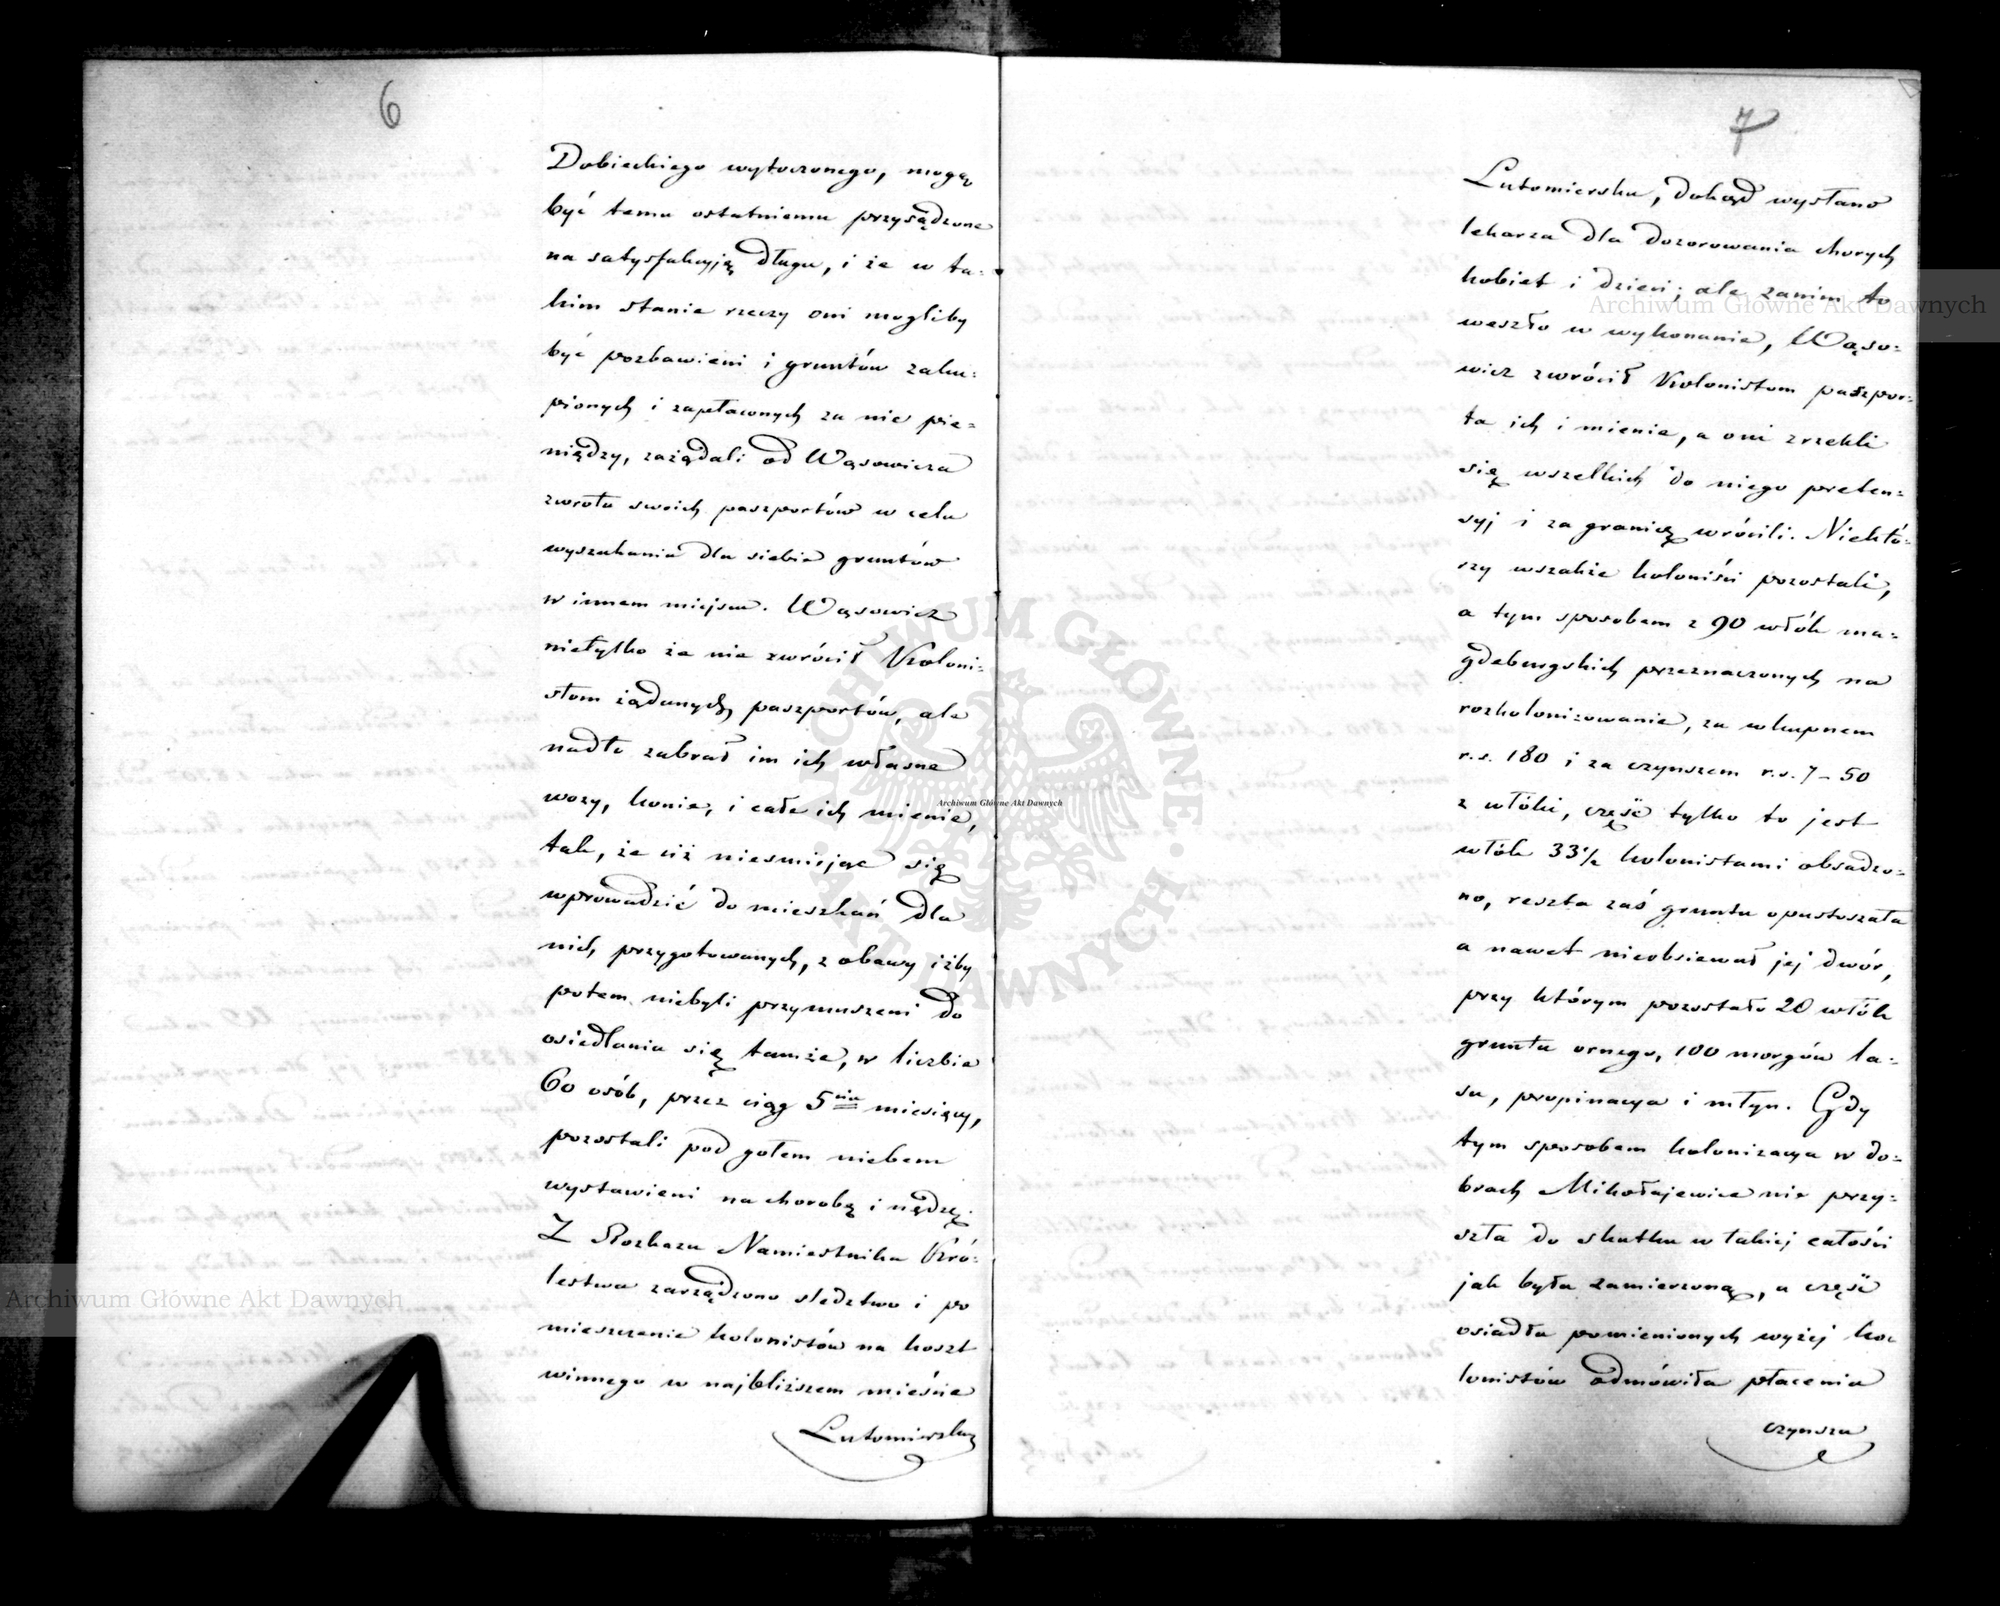 6
Dobieckiego wytoczonego, mogą
być temu ostatniemu przysądzone
na satysfakcyją długu, i że w ta-
kim stanie rzeczy oni mogliby
być pozbawieni i gruntów zaku-
pionych i zapłaconych za nie pie-
niędzy, zażądali od Wąsowicza
zwrotu swoich paszportów w celu
wyszukania dla siebie gruntów
w innem miejscu. Wąsowicz
nietylko że nie zwrócił Koloni-
stom żądanych paszportów, ale
nadto zabrał im ich własne
wozy, konie, i całe ich mienie,
tak, że ciż niesmiejąc się
wprowadzić do mieszkań dla
nich przygotowanych, z obawy iżby
potem niebyli przymuszeni do
osiedlania się tamże, w liczbie
60 osób, przez ciąg 5ciu miesięcy,
pozostali pod gołem niebem
wystawieni na chorobę i nędzę.
Z Rozkazu Namiestnika Kró-
lestwa zarządzono sledztwo i po
mieszczenie kolonistów na koszt
winnego w najbliższem mieście
Lutomiersku
7
Lutomiersku, dokąd wysłano
lekarza dla dozorowania chorych
kobiet i dzieci; ale zanim to
weszło w wykonanie, Wąso-
wicz zwrócił Kolonistom paszpor-
ta ich i mienie, a oni zrzekli
się wszelkich do niego preten-
syj i za granicę wrócili. Niektó-
rzy wszakże koloniści pozostali,
a tym sposobem z 90 włók ma-
gdeburgskich przeznaczonych na
rozkolonizowanie, za wkupnem
r.s. 180 i za czynszem r.s. 7-50
z włóki, część tylko to jest
włók 33½ kolonistami obsadzo-
no, reszta zaś gruntu opustoszała
a nawet nieobsiewał jej dwór,
przy którym pozostało 20 włók
gruntu ornego, 100 morgów la-
su, propinacya i młyn. Gdy
tym sposobem kolonizacya w do-
brach Mikołajewice nie przy-
szła do skutku w takiej całości
jak była zamierzoną, a część
osiadła pomienionych wyżej ko-
lonistów odmówiła płacenia
czynszu
Archiwum Główne Akt Dawnych
Archiwum Główne Akt Dawnych
Archiwum Główne Akt Dawnych
ARCHIWUM GŁÓWNE AKT DAWNYCH